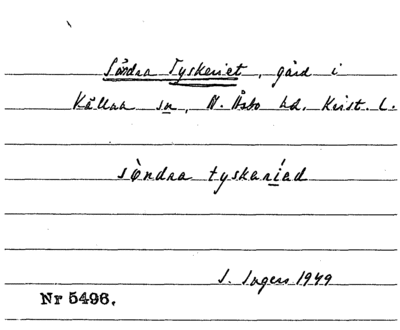 Södra Tyskeriet, gård i
Källna sn, N. Åsbo hd, Krist. l.
sỳndra tyskaríad
I. Ingers 1949
Nr 5496.